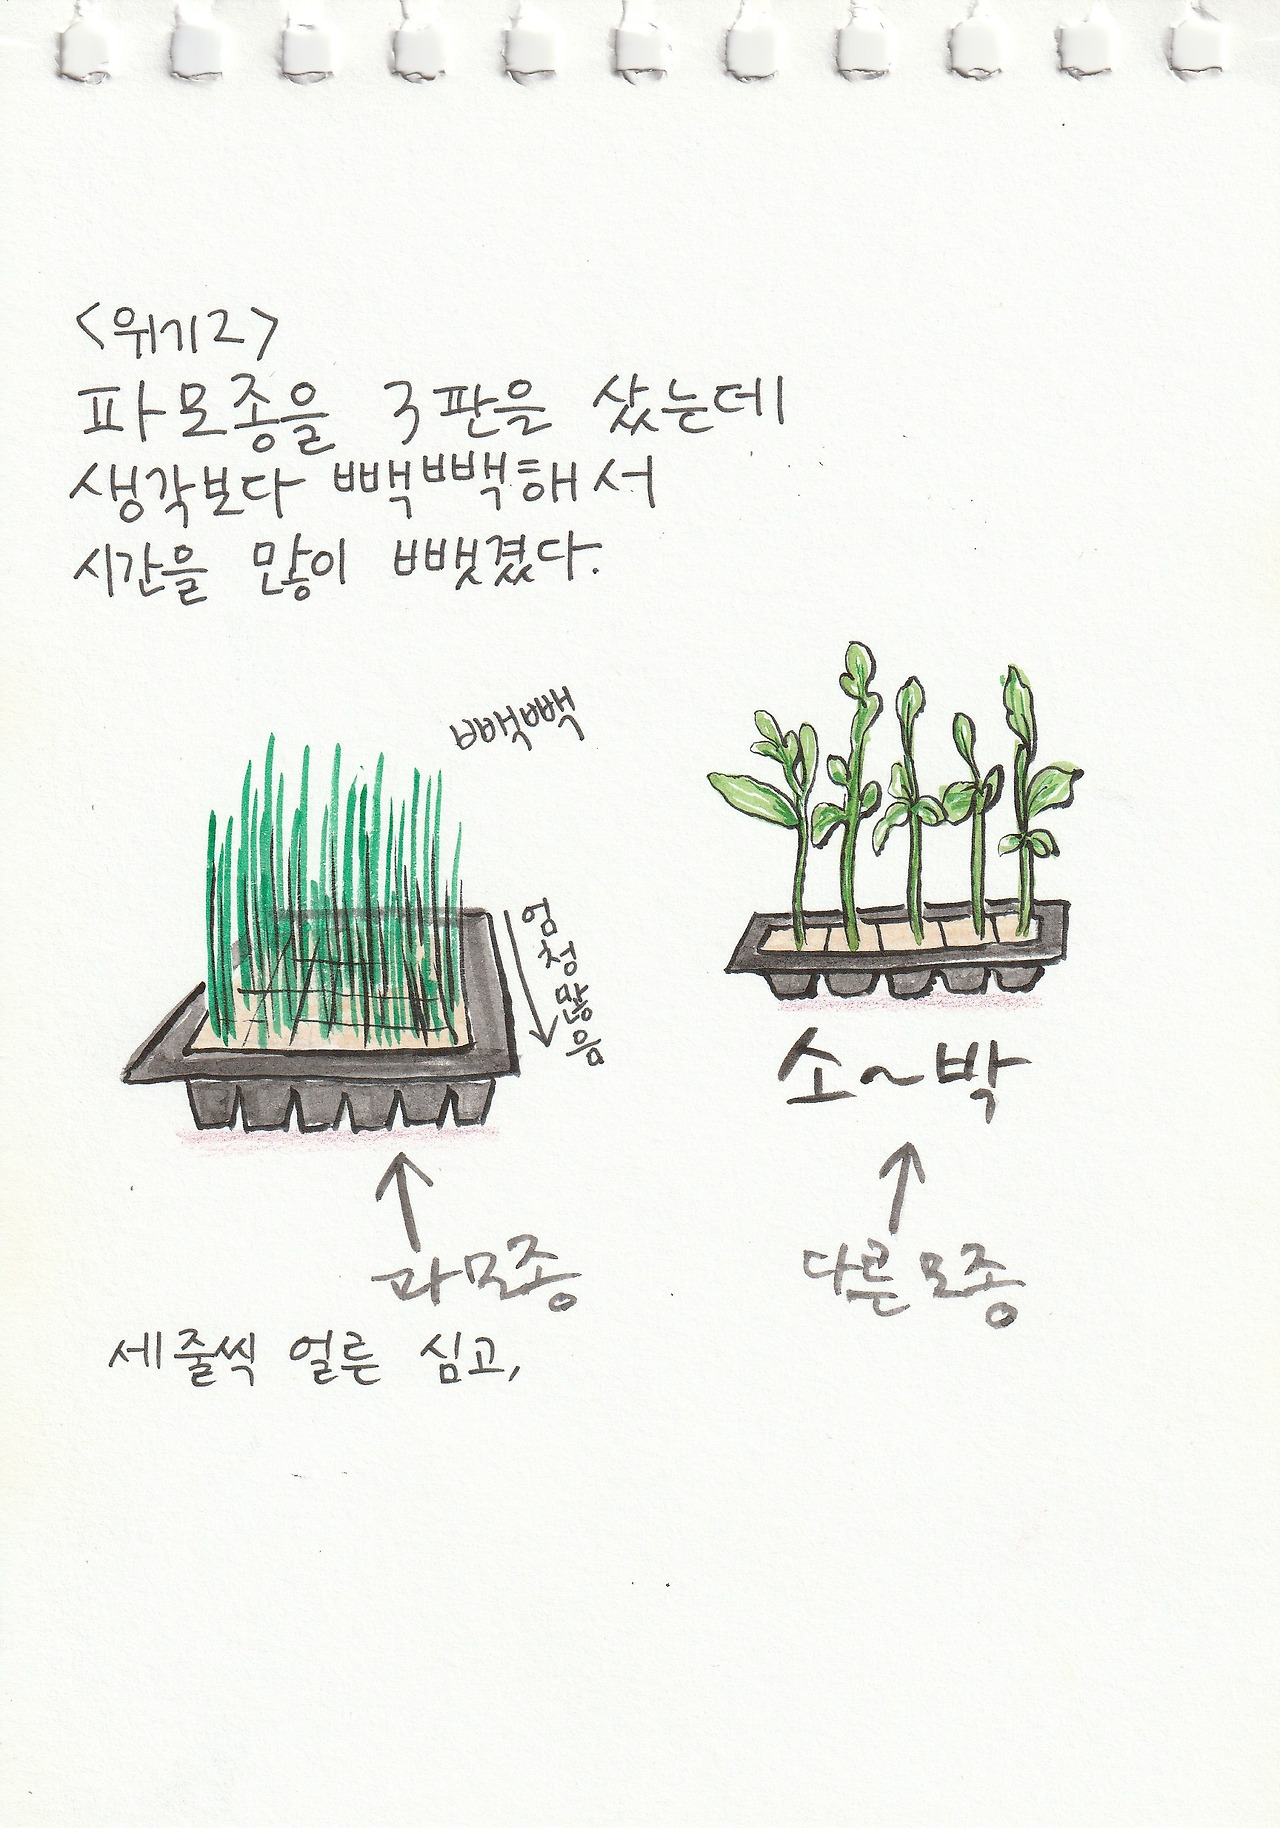 <위기2>
파모종을 3판을 샀는데
생각보다 빽빽해서
시간을 많이 뺏겼다.
빽빽
엄청 많음
소~박
파모종
다른모종
세줄씩 얼른 심고,